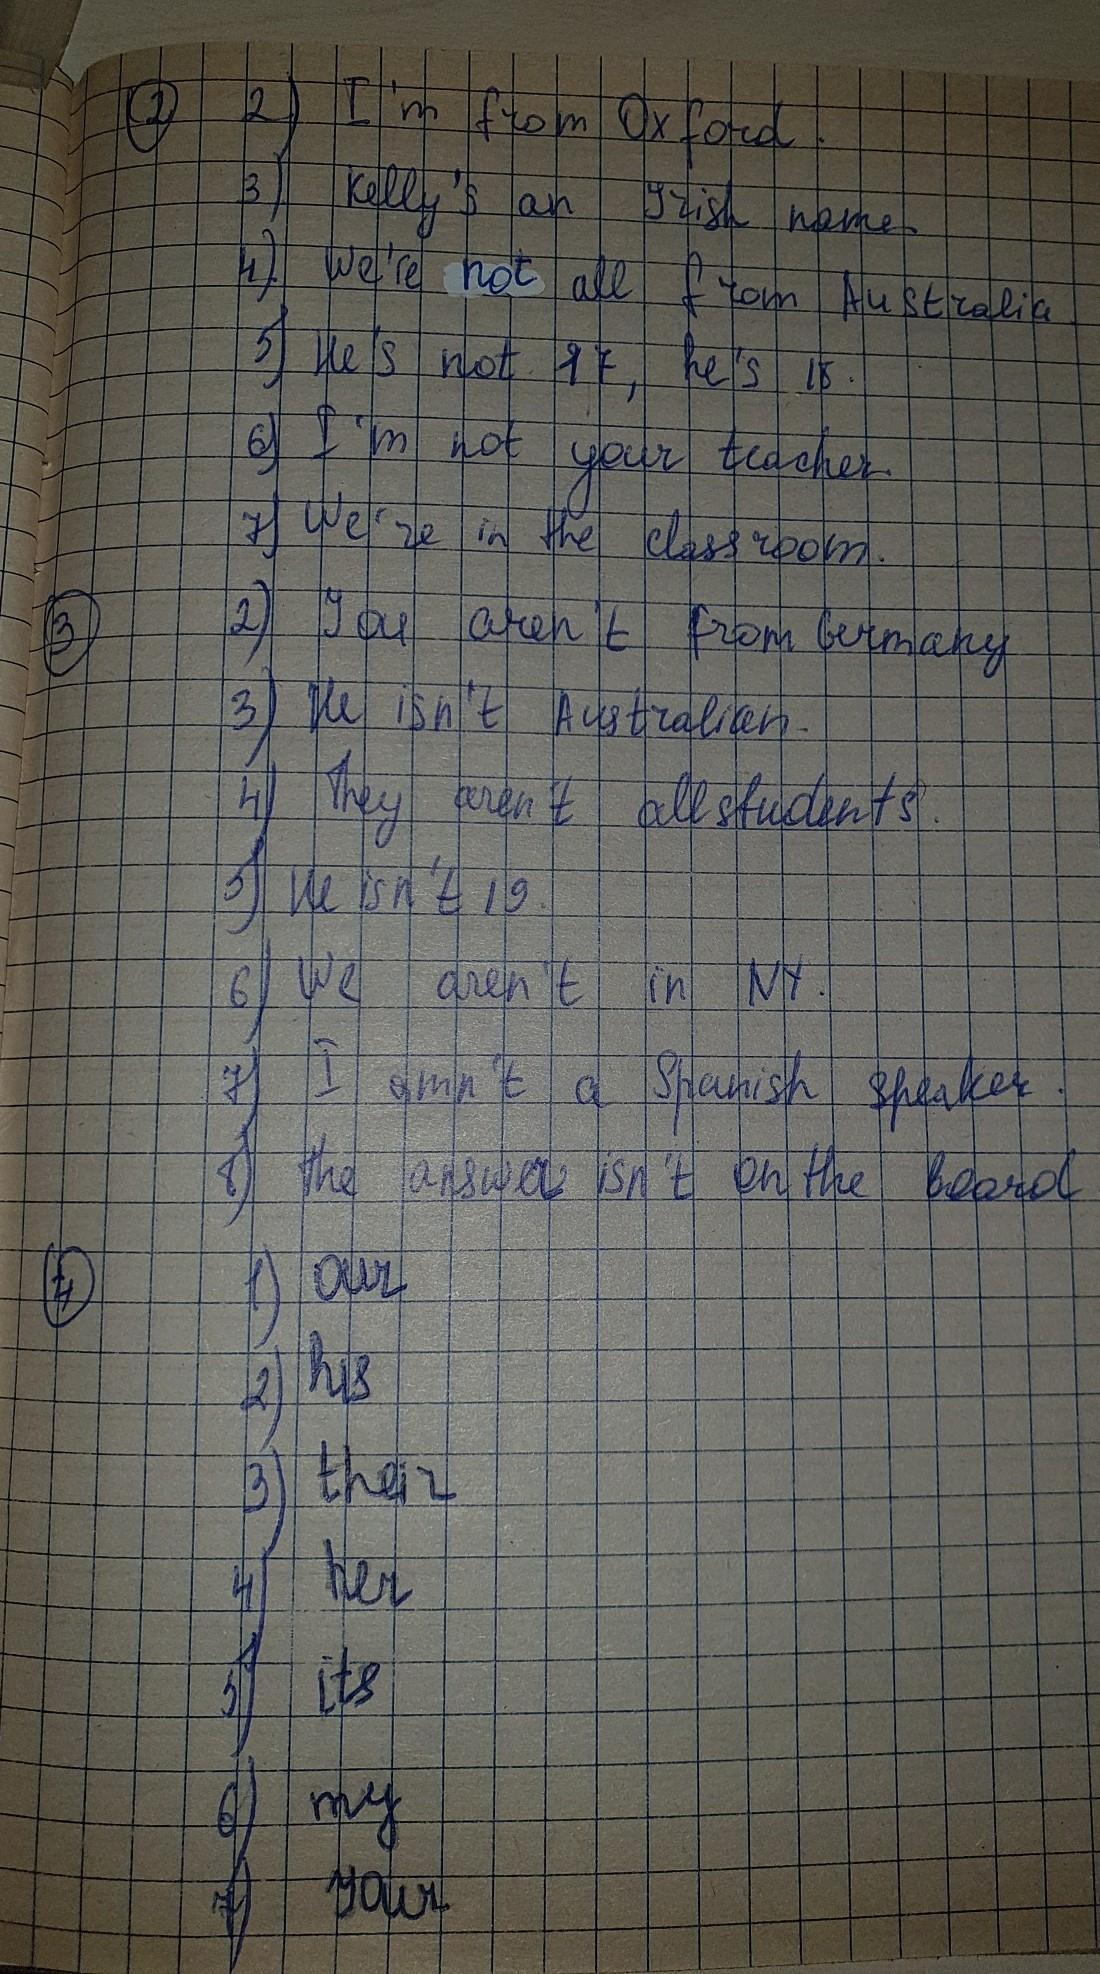 2 2) I'm from Oxford.
3) Kelly's an Irish name.
4) We're not all from Australia
5) He's not 17, he's 18.
6) I'm not your teacher.
7) We're in the classroom.
3 2) You aren't from Germany
3) He isn't Australian.
4) They aren't all students.
5) He isn't 19.
6) We aren't in NY.
7) I amn't a Spanish speaker.
8) The answer isn't on the board
4 1) our
2) his
3) their
4) her
5) its
6) my
7) your